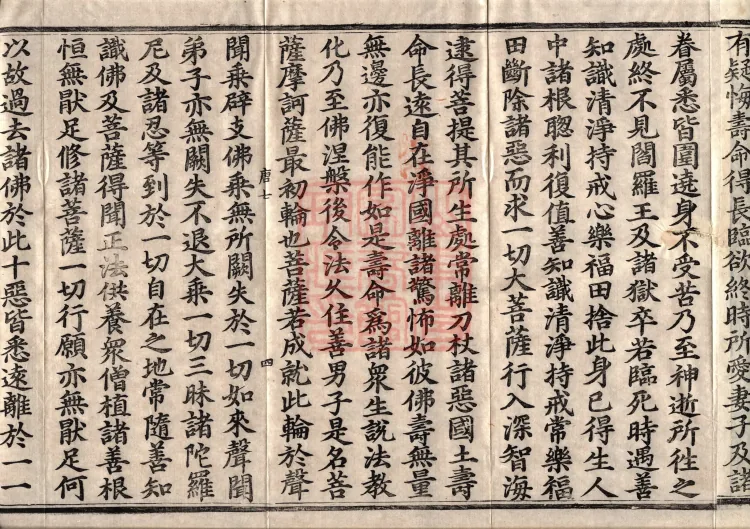 有疑悔壽命得長臨欲終時所愛妻子及諸
眷屬悉皆圍遶身不受苦乃至神逝所往之
處終不見閻羅王及諸獄卒若臨死時遇善
知識清淨持戒心樂福田捨此身已得生人
中諸根聰利復值善知識清淨持戒常樂福
田斷除諸惡而求一切大菩薩行入深智海
逮得菩提其所生處常離刀杖諸惡國土壽
命長遠自在淨國離諸驚怖如彼佛壽無量
無邊亦復能作如是壽命爲諸衆生說法教
化乃至佛涅槃後令法久住善男子是名菩
薩摩訶薩最初輪也菩薩若成就此輪於聲
唐七
四
聞乘辟支佛乘無所闕失於一切如來聲聞
弟子亦無闕失不退大乘一切三昧諸陀羅
尼及諸忍等到於一切自在之地常隨善知
識佛及菩薩得聞正法供養衆僧植諸善根
恒無猒足修諸菩薩一切行願亦無猒足何
以故過去諸佛於此十惡皆悉遠離於一一